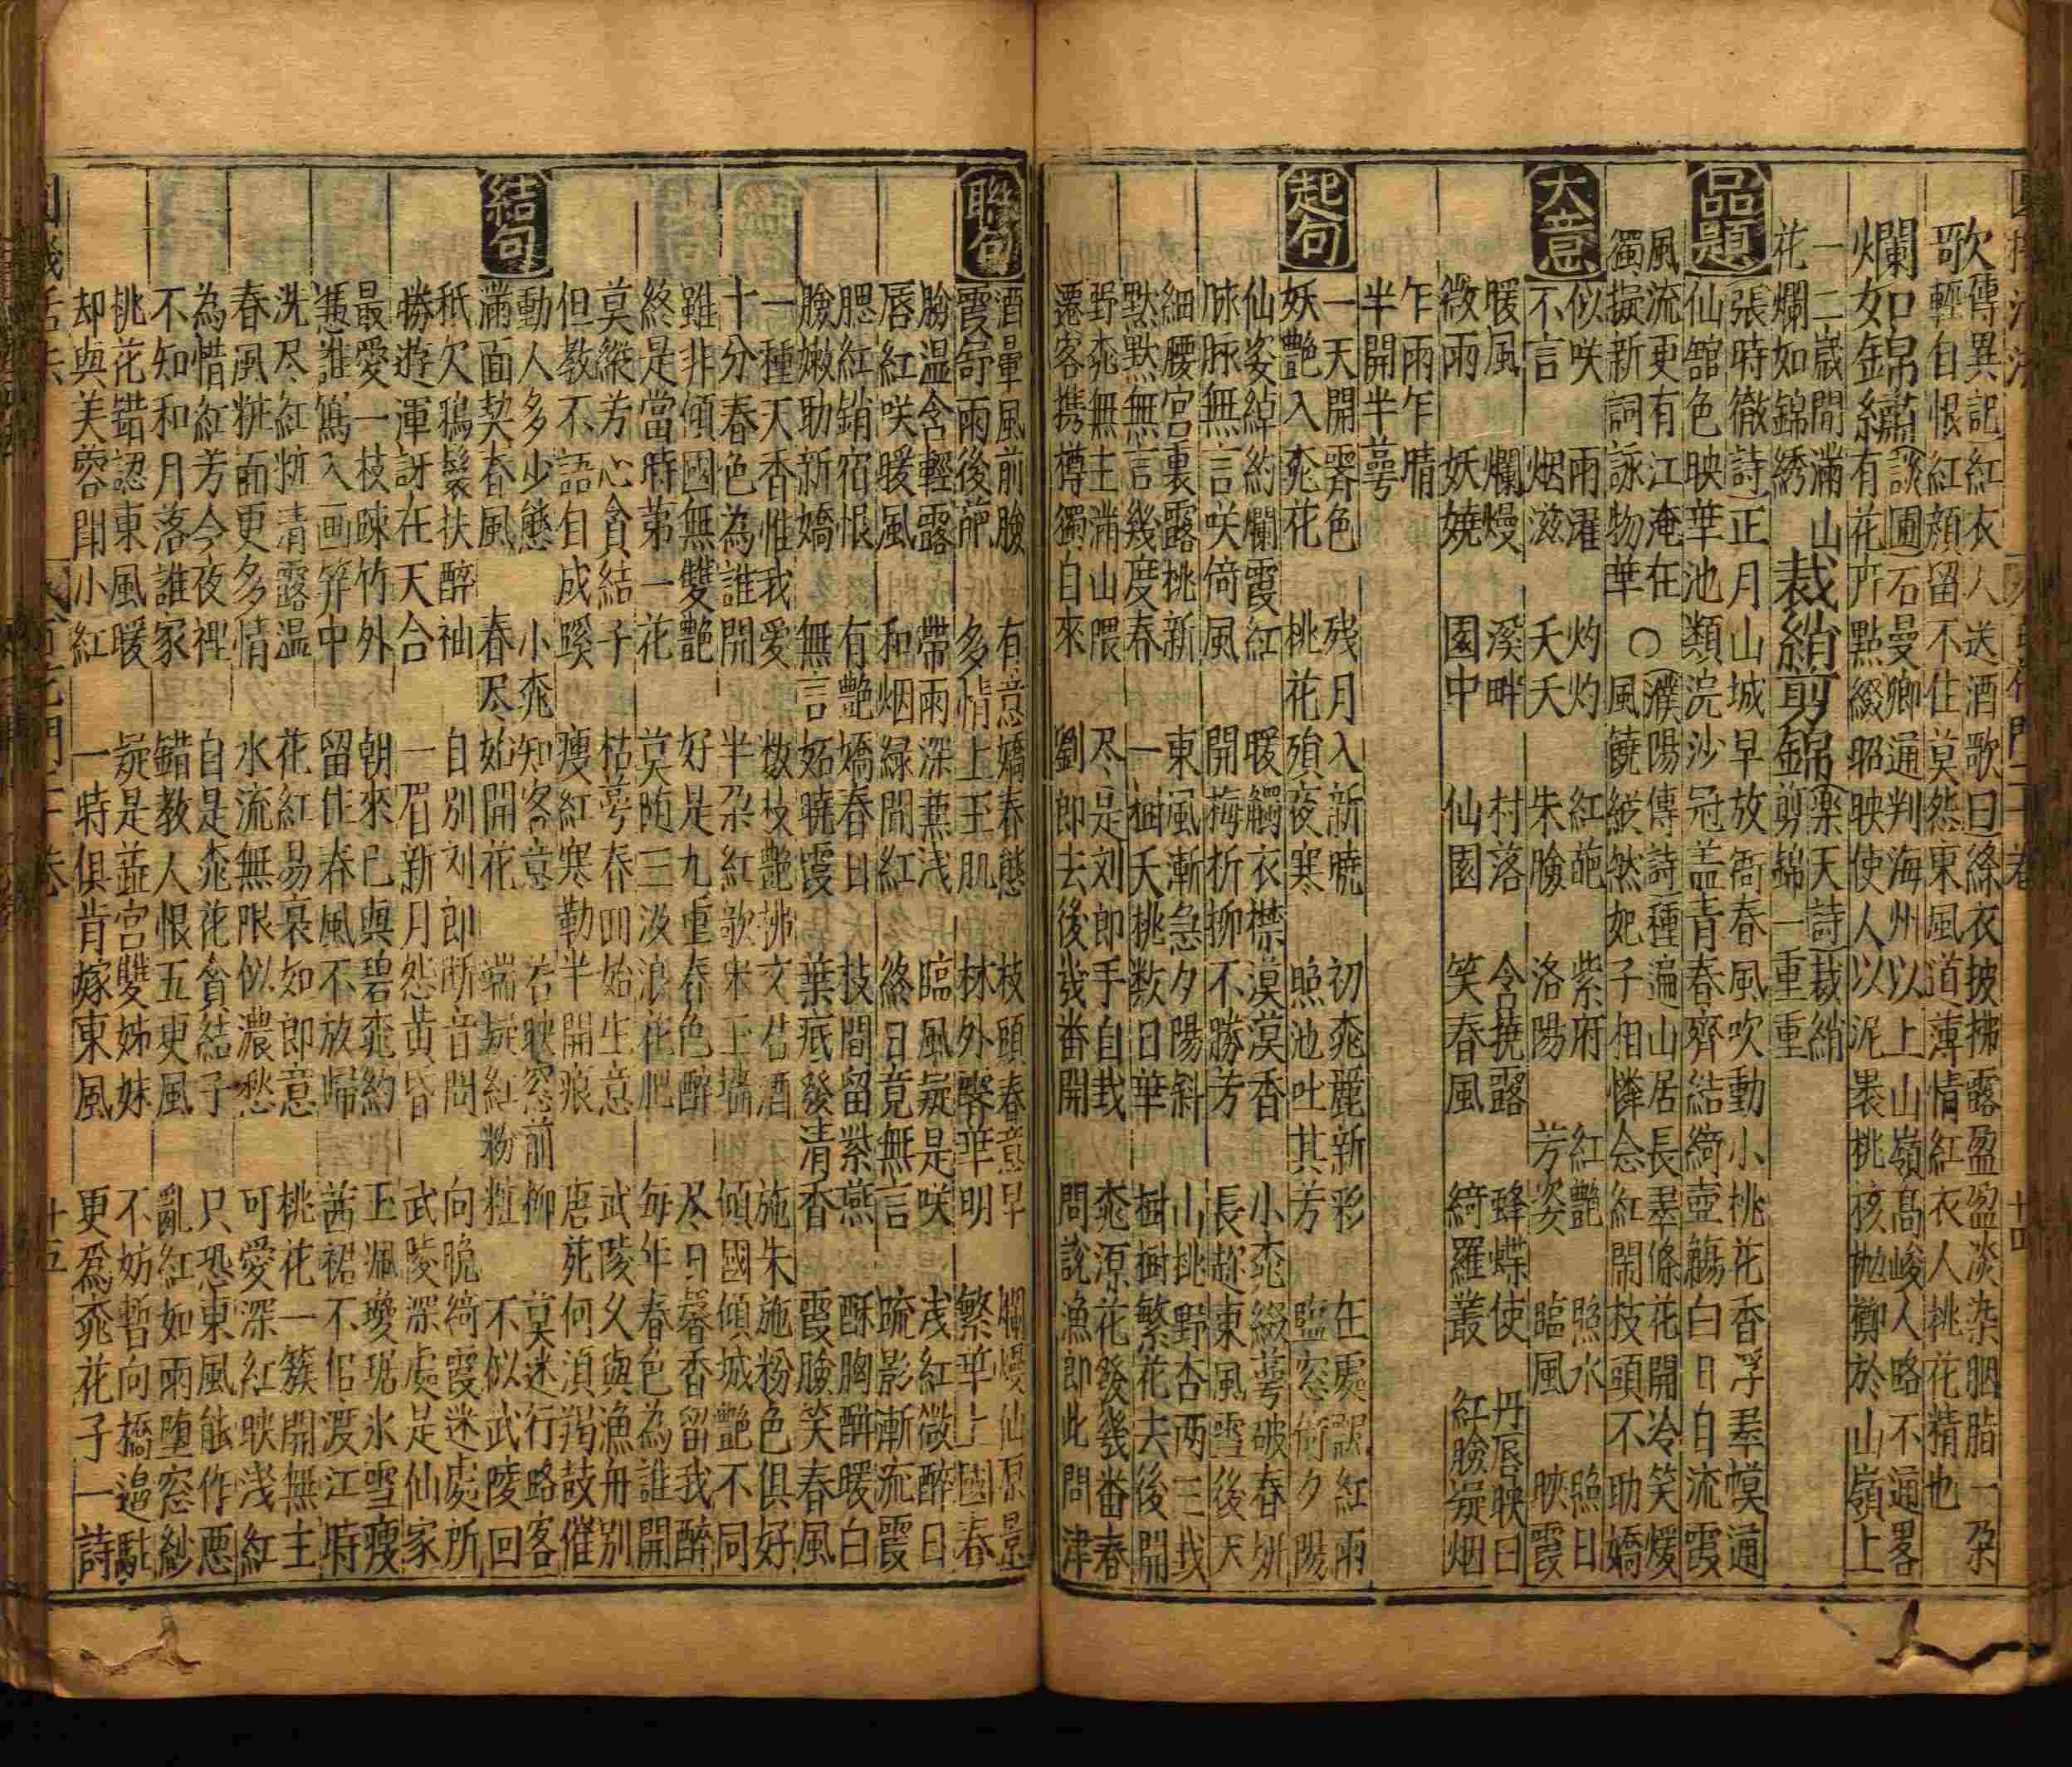 歌
傳異記紅衣人送酒歌曰絳衣披拂露盈盈淡染胭脂一朶
輕自恨紅顔留不住莫怨東風道薄情紅衣人桃花精也
爛如錦繡
談圃石曼卿通判海州以上山嶺高峻人略不通畧
有花卉點綴昭映使人以泥裹桃核抛擲於山嶺上
一二歲間滿山
花爛如錦綉
裁綃剪錦
樂天詩裁綃
剪錦一重重
品題
張時徹詩正月山城早放衙春風吹動小桃花香浮羣幙通
仙舘色映華池類浣沙冠盖青春齊結綺壺觴白日自流霞
風流更有江淹在○濮陽傳詩種遍山居長羣條花開冷笑煖
獨擬新詞詠物華 風饒縱然妃子相憐念紅閙枝頭不助嬌
大意
似咲 雨濯 灼灼 紅葩 紫府 紅艷 照水 照日
不言 烟滋 夭夭 朱臉 洛陽 芳姿 臨風 映霞
暖風 爛熳 溪畔 村落 含撓露 蜂蝶使 丹唇映日
微雨 妖嬈 園中 仙園 笑春風 綺羅叢 紅臉凝烟
乍雨乍晴
半開半萼
起句
一天開霽色 残月入新曉 初桃麗新彩 在處紅雨
妖艷入桃花 桃花殞夜寒 照池吐其芳 臨窓倚夕陽
仙姿綽約爛霞紅 暖觸衣襟漠漠香 小桃綴萼破春妍
脉脉無言咲倚風 開梅折柳不勝芳 長趂東風雪後天
細腰宫裏露桃新 東風漸急夕陽斜 山桃野杏两三栽
默默無言幾度春 一樹夭桃数日華 樹樹繁花去後開
野桃無主滿山隈 尽是刘郎手自栽 桃源花發幾番春
遷客携樽獨自來 劉郎去後幾番開 問說漁郎此問津
聮句
酒暈風前臉 有意嬌春態 枝頭春意早 爛熳仙原景
霞舒雨後葩 多情上玉肌 林外馨華明 繁華上國春
臉温含輕露 帶雨深蕪浅 臨風疑是咲 浅紅微醉日
唇紅咲暖風 和烟緑間紅 終日竟無言 疏影漸流霞
腮紅銷宿恨 有艷嬌春日 枝間留紫燕 酥胸酣暖白
臉嫩助新嬌 無言妬曉霞 葉底發清香 霞臉笑春風
一種天香惟我愛 数枝艷拂文君酒 施朱施粉色俱好
十分春色為誰開 半朶紅歌宋玉墻 傾國傾城艷不同
雖非傾國無雙艷 好是九重春色醉 尽日馨香留我醉
終是當時第一花 莫随三汲浪花肥 每年春色為誰開
莫縱芳心貪結子 枯萼春四始生意 武陵久與漁舟别
但教不語自成蹊 瘦紅寒勒半開痕 唐苑何須羯鼓催
結句
動人多少態 小桃知客意 若映窓前柳 莫迷行路客
滿面契春風 春尽始開花 端疑紅粉粧 不似武陵回
秖欠鴉鬟扶醉袖 自别刘郎断音問 向晚綺霞迷處所
勝遊渾訝在天合 一眉新月怨黄昏 武陵深處足仙家
最愛一枝踈竹外 朝來已與碧桃約 玉珮瓊琚氷雪瘦
慿誰寫入画笄中 留住春風不放歸 茜裙不侣渡江時
洗尽紅妝清露温 花紅易衰如郎意 桃花一簇開無主
春風粧面更多情 水流無限似濃愁 可愛深紅映浅紅
為惜紅芳今夜裡 自是桃花貪結子 只恐東風能作悪
不知和月落誰家 錯教人恨五更風 亂紅如雨堕窓紗
桃花錯認東風暖 疑是蕋宫雙姊妹 不妨暫向橋邉駐
却與芙蓉閗小紅 一時俱肯嫁東風 更爲桃花子一詩